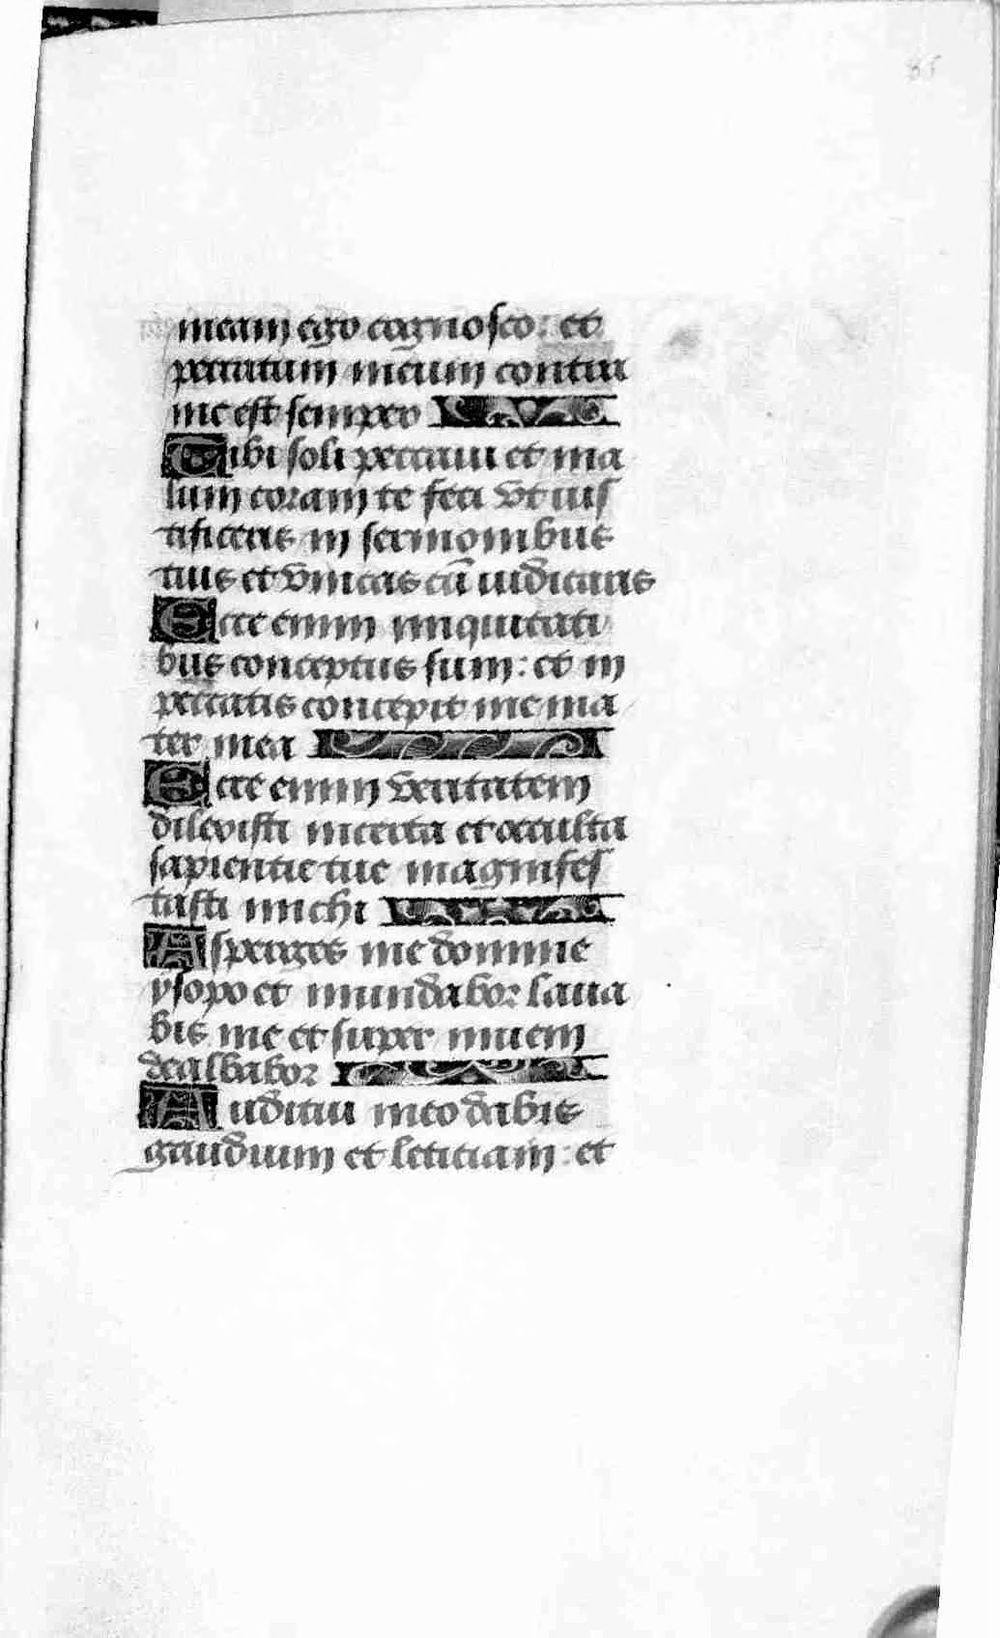 85
meam ego cognosco: et
peccatum meum contra
me est semper
Tibi soli peccaui et ma
lum coram te feci vt ius
tificeris in sermonibus
tuis et vincas cū iudicaris
Ecce enim iniquitati
bus conceptus sum: et in
peccatis concepit me ma
ter mea
Ecce enim veritatem
dilexisti incerta et occulta
sapientie tue magnifes
tasti michi
Asperges me domine
ysopo et mundabor laua
bis me et super niuem
dealbabor
Auditui meo dabis
gaudium et leticiam: et